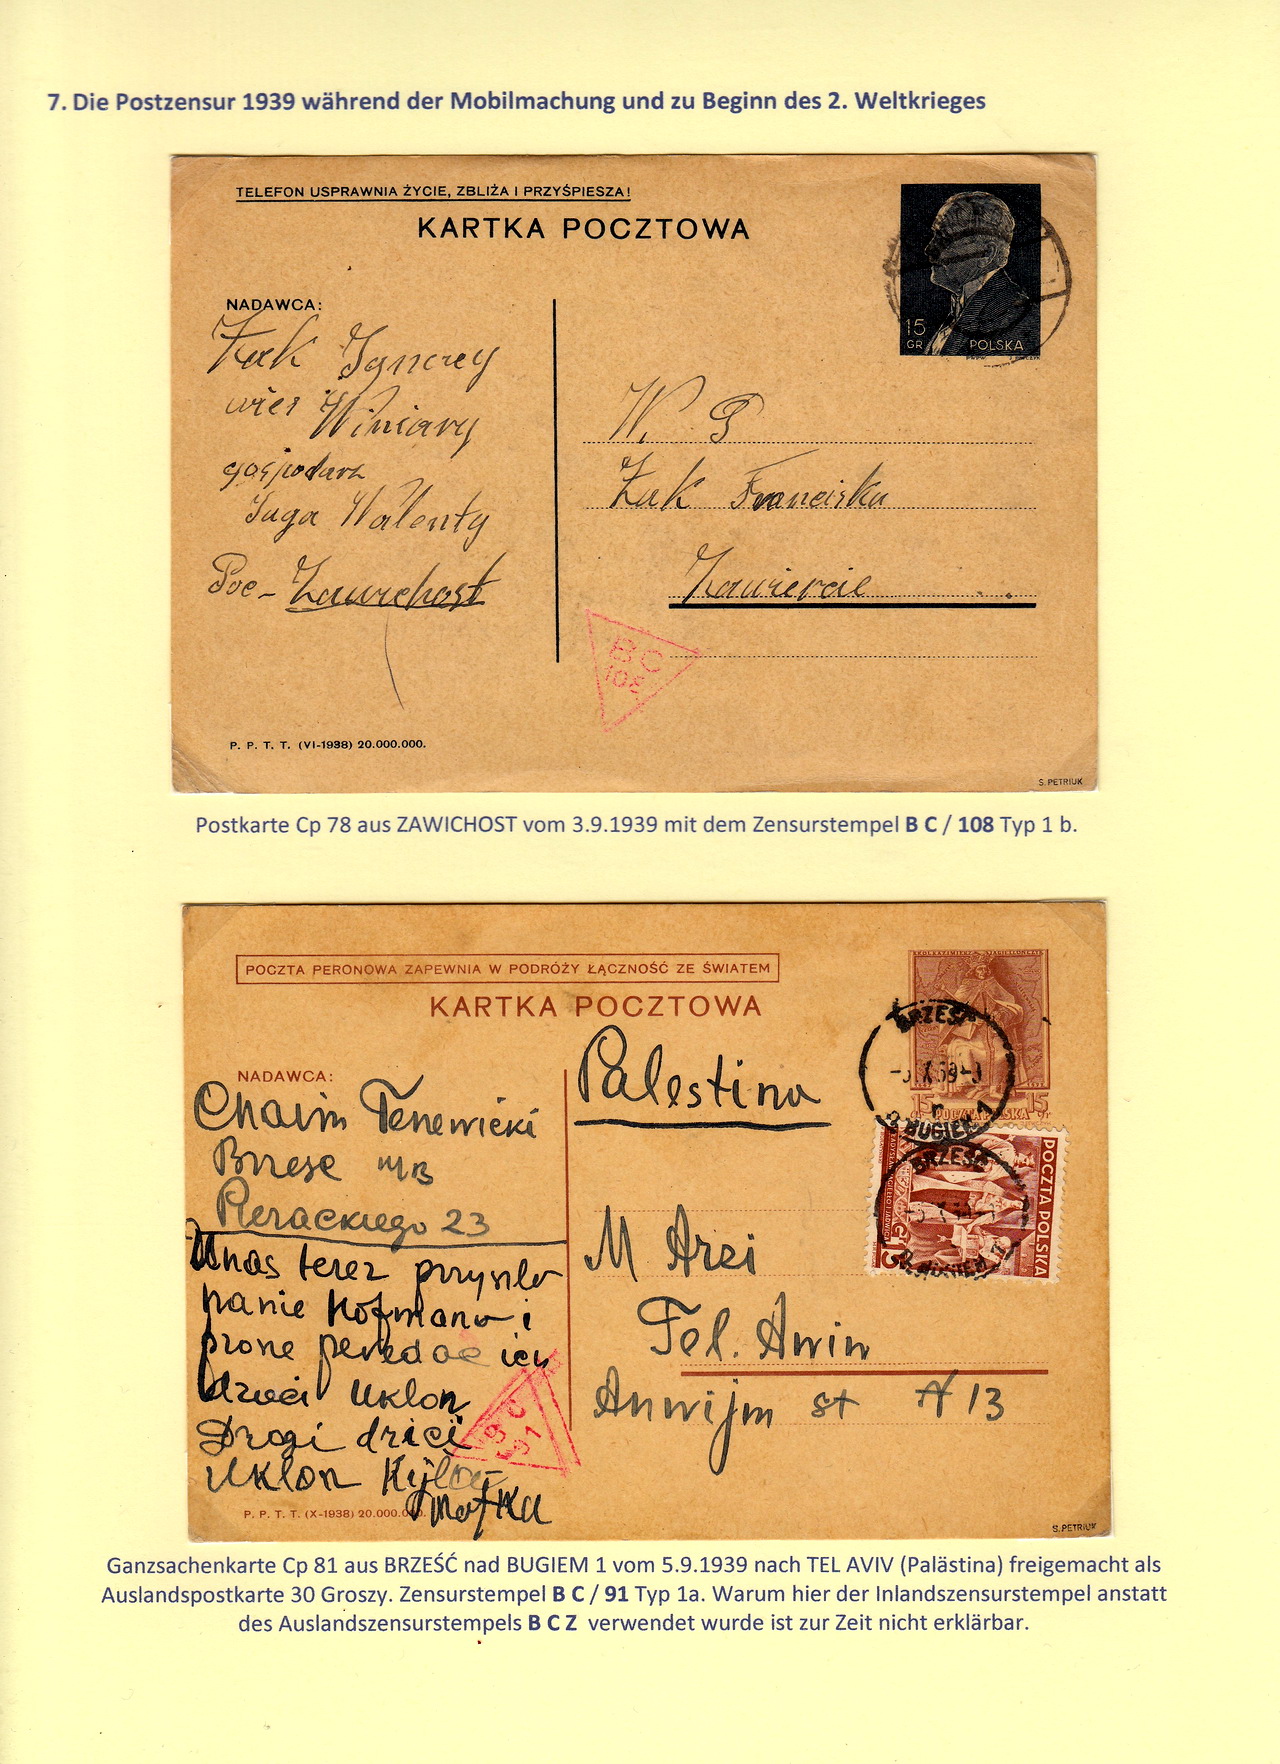 7. Die Postzensur 1939 während der Mobilmachung und zu Beginn des 2. Weltkrieges
TELEFON USPRAWNIA ŻYCIE, ZBLIŻA I PRZYŚPIESZA!
KARTKA POCZTOWA
15
GR
POLSKA
NADAWCA:
Żak Ignacy
wieś Winiary
gospodarz
Juga Walenty
Poc- Zawichost
W. P
Żak Franciska
Zawiercie
B C
108
P. P. T. T. (VI-1938) 20.000.000.
S. PETRIUK
Postkarte Cp 78 aus ZAWICHOST vom 3.9.1939 mit dem Zensurstempel B C / 108 Typ 1 b.
POCZTA PERONOWA ZAPEWNIA W PODRÓŻY ŁĄCZNOŚĆ ZE ŚWIATEM
KARTKA POCZTOWA
15 15
POCZTA POLSKA
BRZEŚĆ
N. BUGIEM 1
POCZTA POLSKA
15
BRZEŚĆ
N. BUGIEM 1
Palestina
NADAWCA:
Chaim Tenewicki
Brześć n/B
Pierackiego 23
U nas terez
panie Hofmano i
prone
Uklon
Drogi
Uklon
Matka
M Arzi
Tel. Awiw
st 13
B C
91
P. P. T. T. (X-1938) 20.000.000.
S. PETRIUK
Ganzsachenkarte Cp 81 aus BRZEŚĆ nad BUGIEM 1 vom 5.9.1939 nach TEL AVIV (Palästina) freigemacht als
Auslandspostkarte 30 Groszy. Zensurstempel B C / 91 Typ 1a. Warum hier der Inlandszensurstempel anstatt
des Auslandszensurstempels B C Z verwendet wurde ist zur Zeit nicht erklärbar.